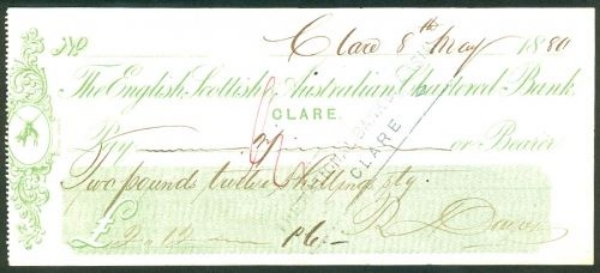 No Clare 8th May 1880
The English, Scottish & Australian Chartered Bank.
CLARE.
Pay or Bearer
Two pounds twelve shillings stg
£ 2 . 12
NATIONAL BANK
CLARE